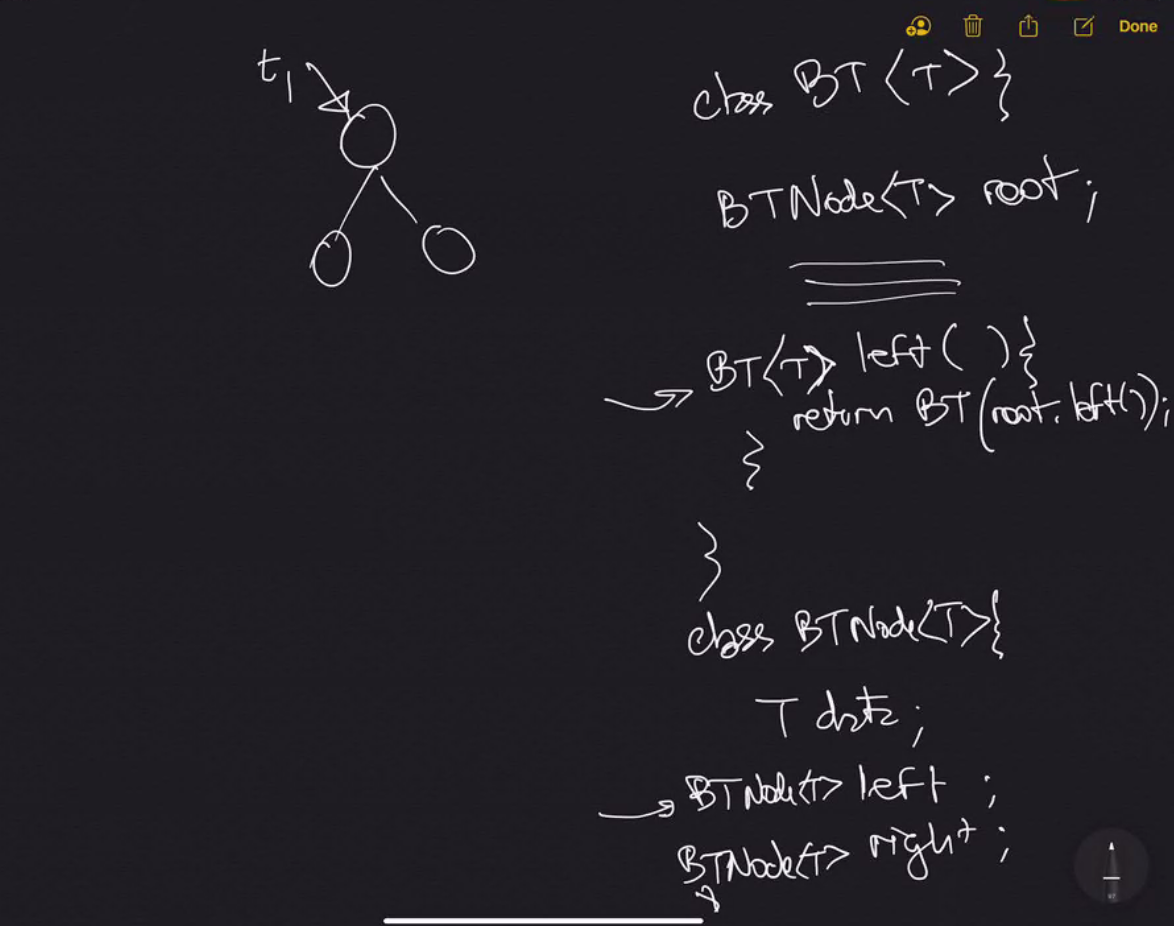 Done
t1
class BT<T>{
BTNode<T> root;
BT<T> left( ){
return BT(root.left());
}
}
class BTNode<T>{
T data;
BTNode<T> left ;
BTNode<T> right ;